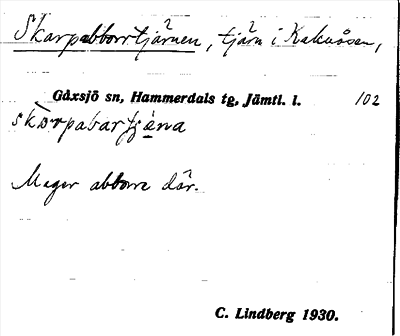 Skarpabborrtjärnen, tjärn i Kaknåsen,
Gåxsjö sn, Hammerdals tg, Jämtl. l. 102
skàrpabartjä̱na
Mager abborre där.
C. Lindberg 1930.